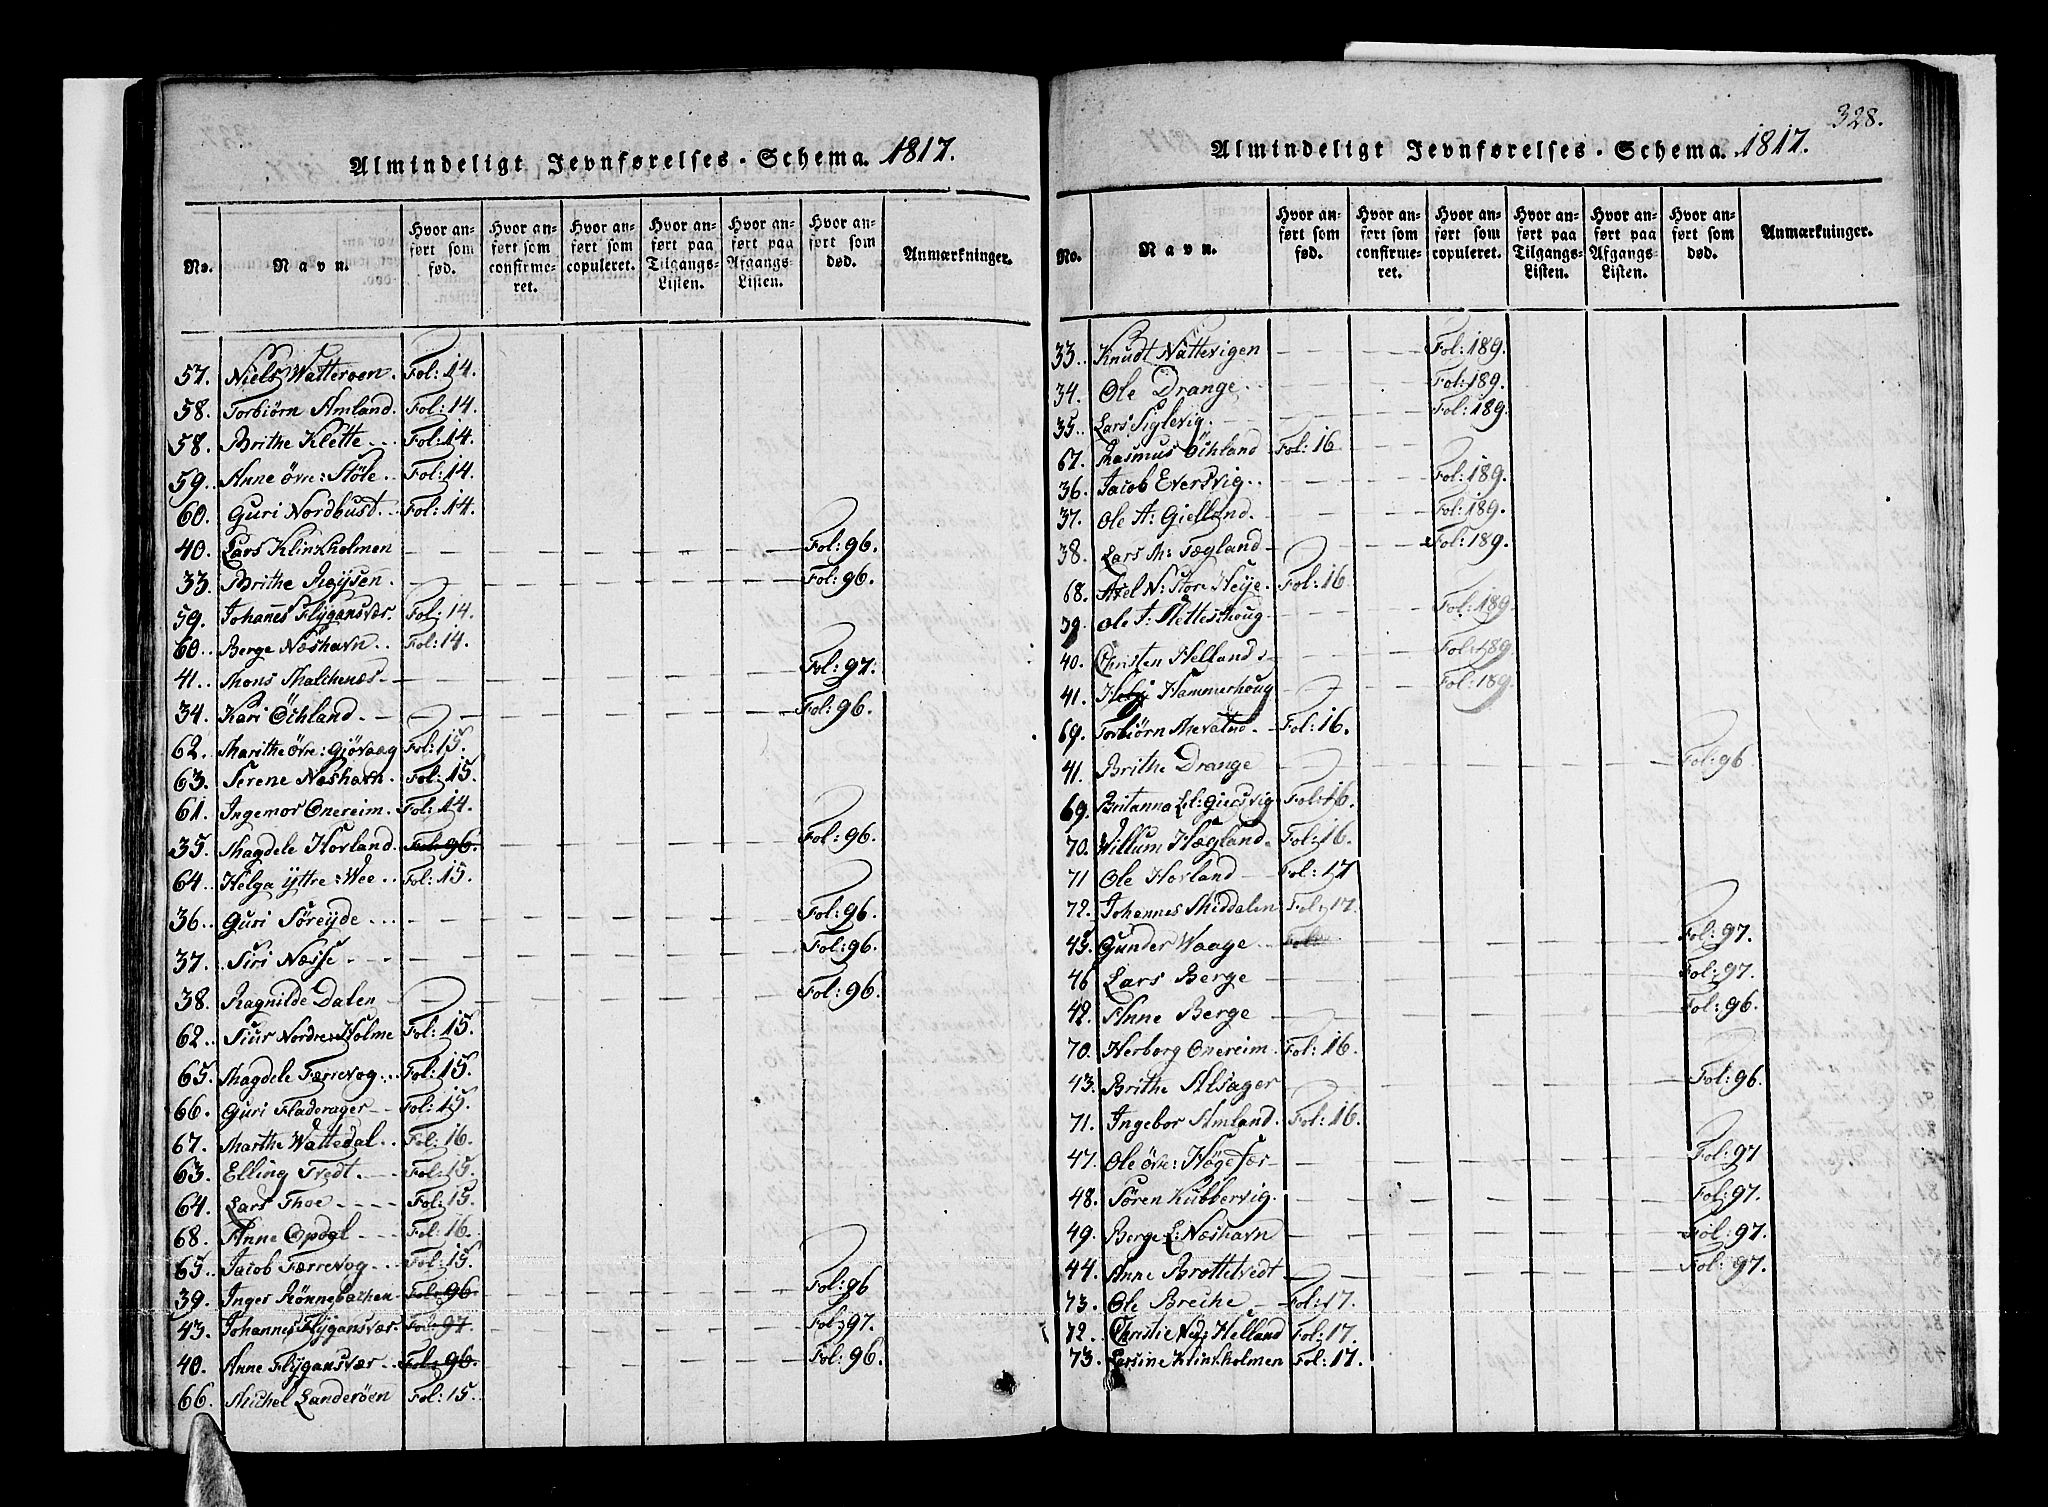 Almindeligt Jevnførelses-Schema. 1817.
No.
Navn.
Hvor anført som fød.
Hvor anført som confirmeret.
Hvor anført som copuleret.
Hvor anført paa Tilgangs-Listen.
Hvor anført paa Afgangs-Listen.
Hvor anført som død.
Anmærkninger.
57. Niels Watteroen. Fol: 14.
58. Torbiörn Amland. Fol: 14.
58. Brithe Klette Fol: 14.
59. Anne övre: Stöle Fol: 14.
60. Guri Nordhust. Fol: 14.
40. Lars Klinkholmen Fol: 96.
33. Brithe Fol: 96.
59. Johannes Flygansvær. Fol: 14.
60. Berge Næshavn Fol: 14.
41. Mons Malchenæs Fol: 97.
34. Kari Öchland Fol: 96.
62. Marithe övre: Gjövaag Fol: 15.
63. Serene Næshavn. Fol: 15.
61. Ingemor Onereim. Fol: 14.
35. Magdele Hovland. Fol: 96. Fol: 96.
64. Helga yttre: Wee Fol: 15.
36. Guri Söreyde Fol: 96.
37. Siri Næsse Fol: 96.
38. Ragnilde Dalen Fol: 96.
62. Siur Nordre: Holme Fol: 15.
65. Magdele Færrevog Fol: 15.
66. Guri Fladerager Fol: 15.
67. Marthe Wattedal Fol: 16.
63. Elling Tvedt. Fol: 15.
64. Lars Thoe Fol: 15.
68. Anne Opdal Fol: 16.
65. Jacob Færrevog Fol: 15.
39. Inger Rönnebachen Fol: 96 Fol: 96
43. Johannes Flygansvær. Fol: 97. Fol: 97.
40. Anne Flygansvær Fol: 96. Fol: 96.
66. Michel Landeröen Fol: 15.
328.
Almindeligt Jevnførelses-Schema. 1817.
No.
Navn.
Hvor anført som fød.
Hvor anført som confirmeret.
Hvor anført som copuleret.
Hvor anført paa Tilgangs-Listen.
Hvor anført paa Afgangs-Listen.
Hvor anført som død.
Anmærkninger.
33. Knudt Nattevigen Fol: 189.
34. Ole Drange. Fol: 189.
35. Lars Siglevig. Fol: 189.
67. Rasmus Öchland Fol: 16
36. Jacob Eversvig Fol: 189.
37. Ole A: Gielland. Fol: 189.
38. Lars M: Tægland Fol: 189.
68. Axel N: Store Heije. Fol: 16
39. Ole Sletteschoug Fol: 189.
40. Christen Helland Fol: 189.
41. Helje Hammerhoug Fol: 189.
69. Torbiörn Fol: 16.
41. Brithe Drange Fol: 96
69. Britanna Lil: Giersvig Fol: 16.
70. Willum Hægland. Fol: 16.
71 Ole Hovland Fol: 17
72. Johannes Middalen Fol: 17.
45. Gunder Waage Fol: Fol: 97.
46 Lars Berge Fol: 97.
42. Anne Berge Fol: 96.
70. Herborg Onereim. Fol: 16.
43. Brithe Alsager Fol: 96.
71. Ingebor Amland. Fol: 16.
47. Ole övre: Högesær Fol: 97
48. Sören Kubbervig. Fol: 97.
49. Berge L: Næshavn Fol: 97.
44. Anne Brottetvedt Fol: 97.
73. Ole Breche Fol: 17.
72. Christie Ned: Helland Fol: 17.
73. Larsine Klinkholmen Fol: 17.